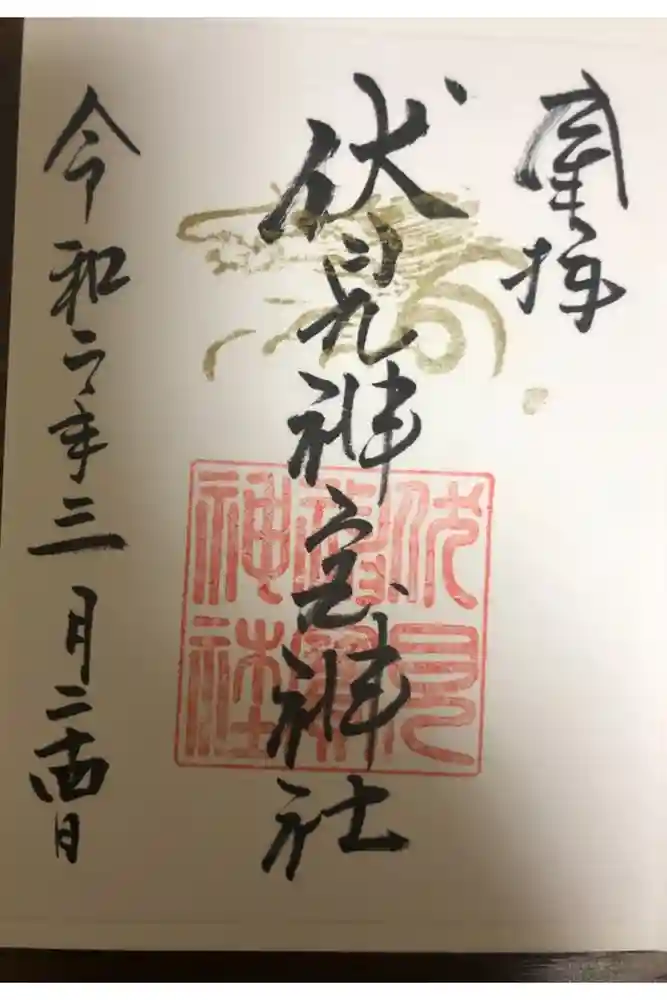 奉拝
伏見神宝神社
伏見神寶神社
令和二年三月二十四日